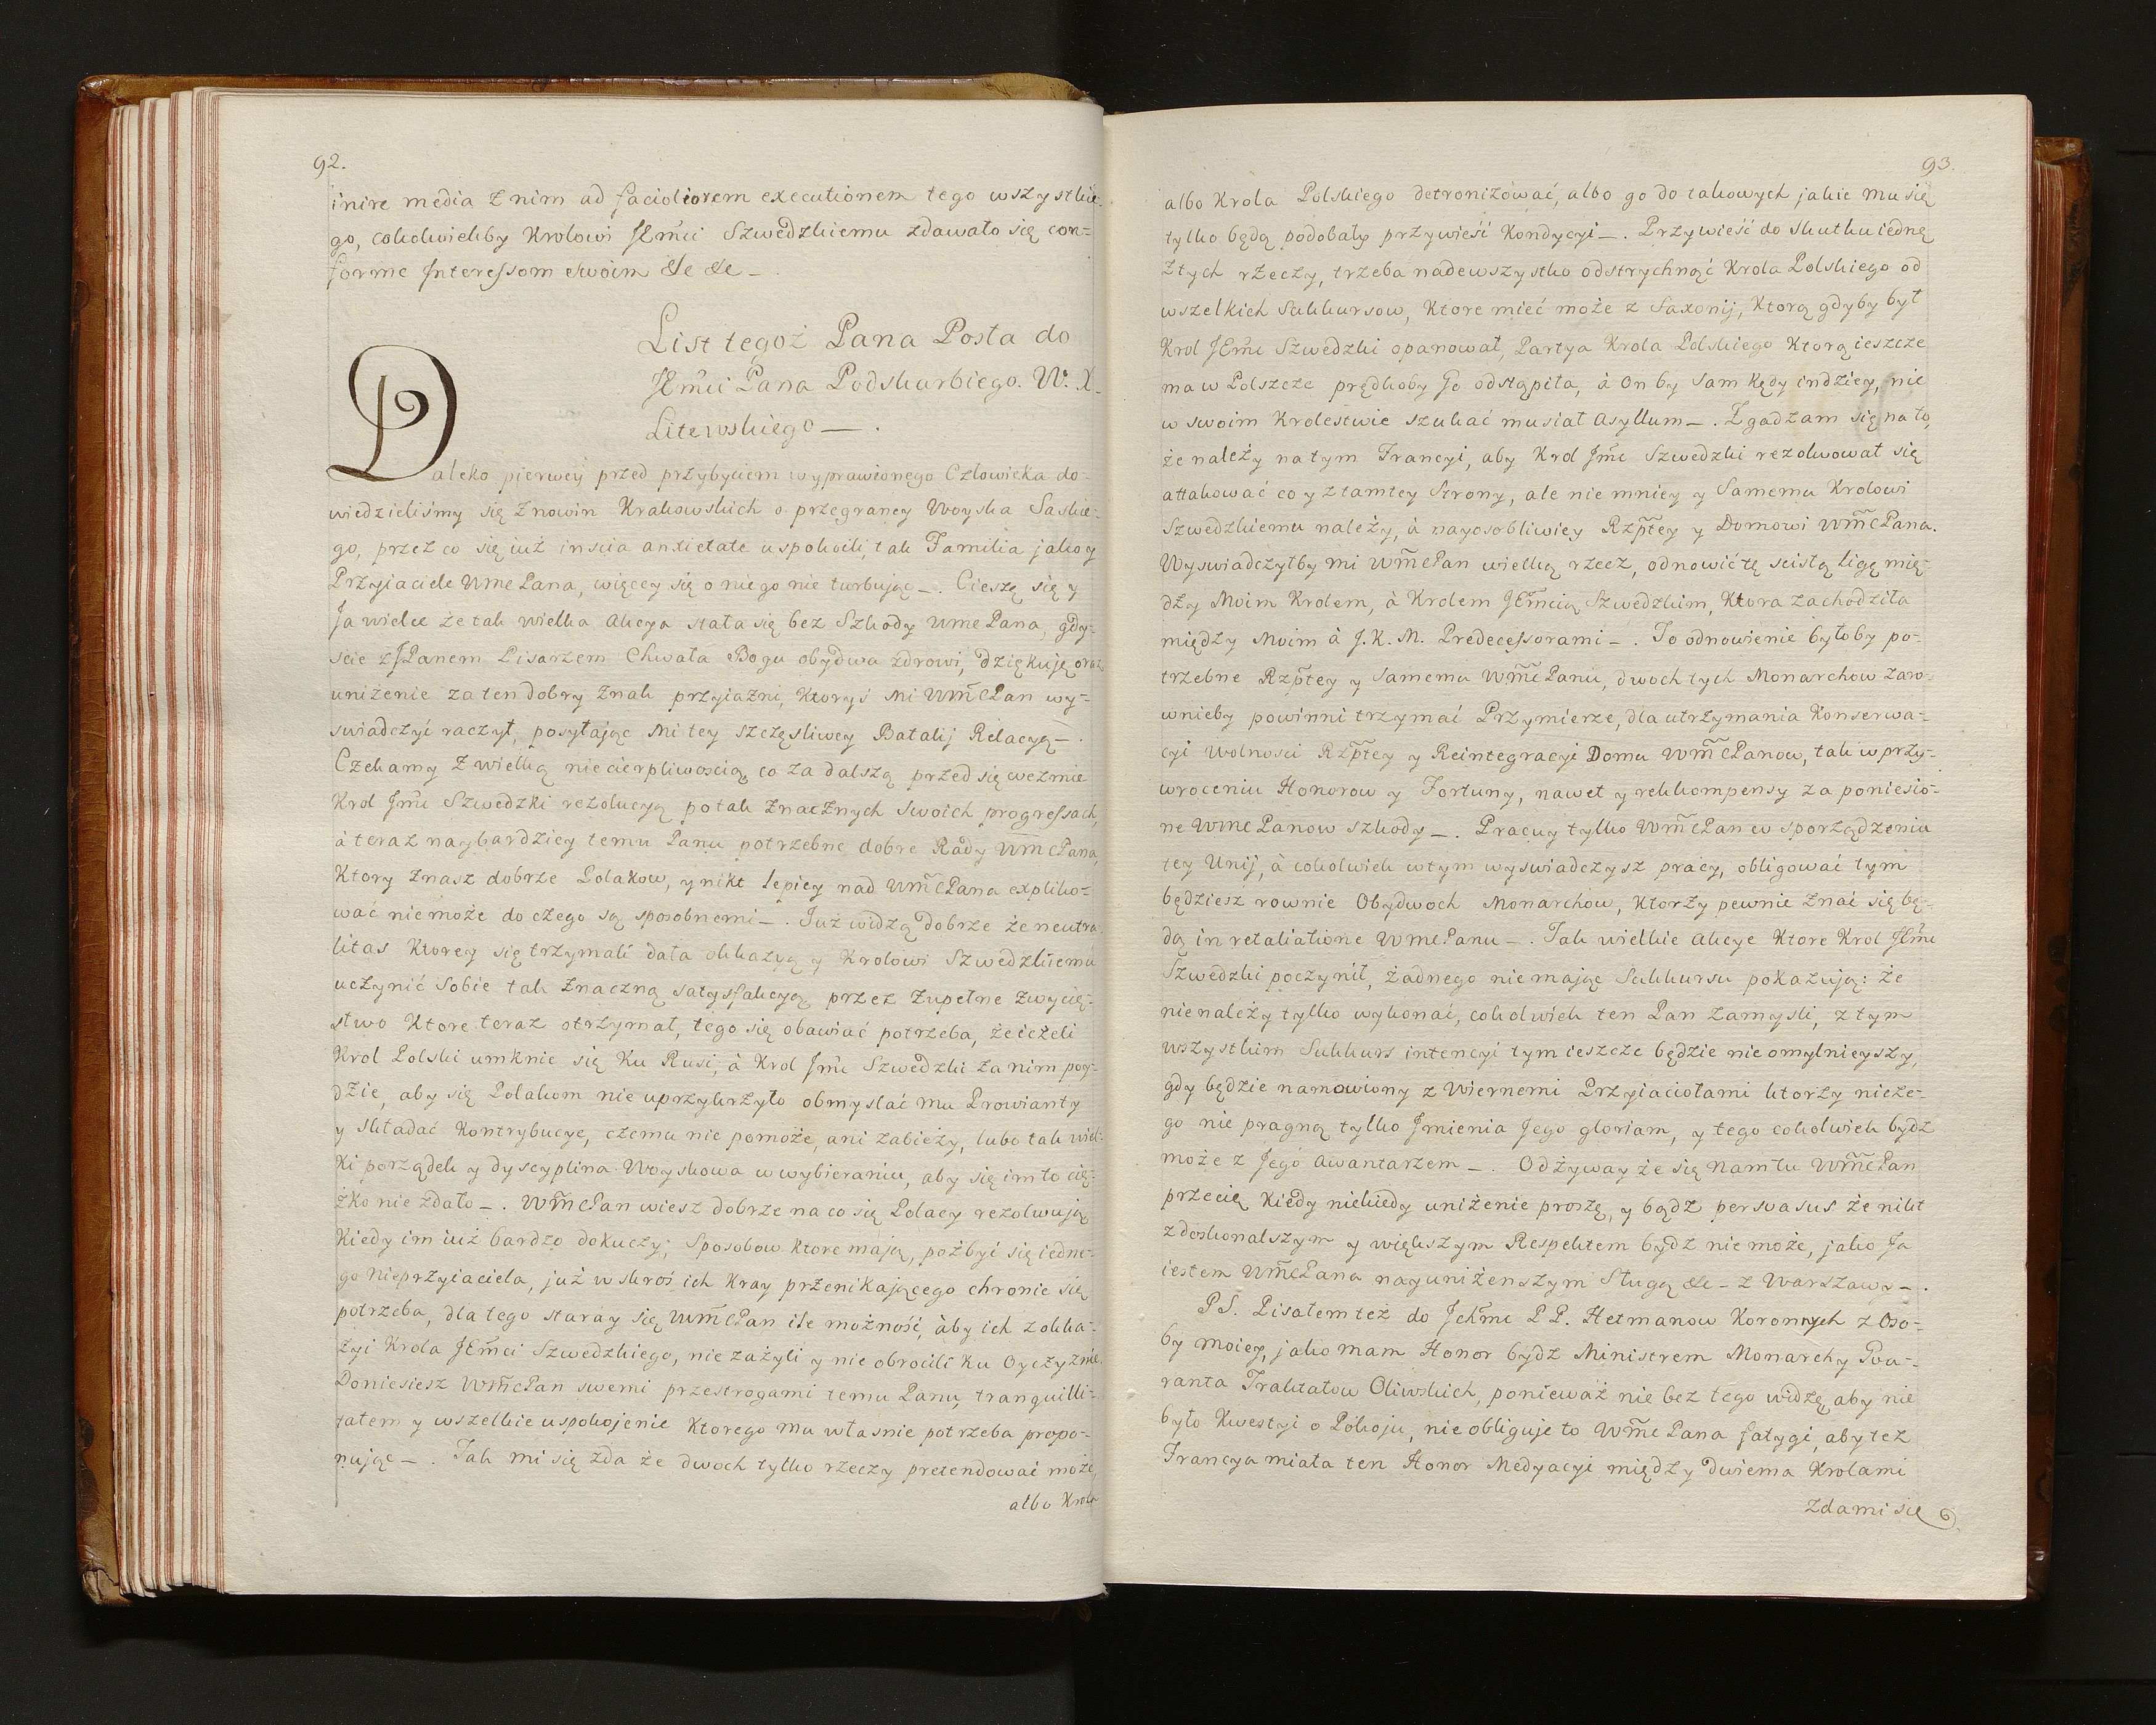 92.
inire media z nim ad faciliorem executionem tego wszystkie-
go, cokolwiekby Krolowi JEmći Szwedzkiemu zdawało się con-
forme Interessom swoim &c &c —
List tegoż Pana Posła do
JEmći Pana Podskarbiego. W. X.
Litewskiego — .
Daleko pierwey przed przybyciem wyprawionego Człowieka do-
wiedzieliśmy się z nowin Krakowskich o przegraney Woyska Saskie-
go, przez co się iuż inscia anxietate uspokoili, tak Familia jako y
Przyiaciele Wmc Pana, więcey się o niego nie turbując —. Cieszę się y
Ja wielce że tak wielka Akcya stała się bez Szkody Wmc Pana, gdy-
scie z JPanem Pisarzem Chwała Bogu obydwa zdrowi, dziękuję oraz
uniżenie za ten dobry znak przyiaźni, Ktoryś mi Wm̃cPan wy-
swiadczyć raczył, posyłając mi tey szczęsliwey Batalij Relacyą —.
Czekamy z wielką niecierpliwoscią, co za dalszą przed się wezmie
Krol Jmći Szwedzki rezolucyą po tak znacznych swoich progressach,
à teraz naybardziey temu Panu potrzebne dobre Rady Wm̃cPana,
Ktory znasz dobrze Polakow, y nikt lepiey nad Wm̃cPana expliko-
wać nie może do czego są sposobnemi —. Już widzą dobrze że neutra
litas Ktorey się trzymali dała okkazyą y Krolowi Szwedzkiemu
uczynić sobie tak znaczną satysfakcyą przez zupełne zwycię-
stwo Ktore teraz otrzymał, tego się obawiać potrzeba, że ieżeli
Krol Polski umknie się Ku Rusi, à Krol Jmći Szwedzki za nim poy-
dzie, aby się Polakom nie uprzykrzyło obmyslać mu Prowianty
y składać Kontrybucye, czemu nie pomoże, ani zabieży, lubo tak wiel-
ki porządek y dyscyplina Woyskowa w wybieraniu, aby się im to cię-
żko nie zdało —. Wm̃cPan wiesz dobrze na co się Polacy rezolwują
Kiedy im iuż bardzo dokuczy; Sposobow Ktore mają, pozbyć się iedne-
go Nieprzyiaciela, już w skroś ich Kray przenikającego chronić się
potrzeba, dla tego staray się Wm̃cPan ile możność, àby ich z okka-
zyi Krola JEmći Szwedzkiego, nie zażyli y nie obrocili Ku Oyczyznie.
Doniesiesz Wm̃cPan swemi przestrogami temu Panu, tranquilli-
tatem y wszelkie uspokojenie Ktorego mu własnie potrzeba propo-
nując —. Tak mi się zda że dwoch tylko rzeczy pretendować może,
albo Krola
93.
albo Krola Polskiego detronizować, albo go do takowych jakie mu się
tylko będą podobały przywieść Kondycyi —. Przywieść do skutku iednę
z tych rzeczy, trzeba nadewszystko odstrychnąć Krola Polskiego od
wszelkich Sukkursow, Ktore mieć może z Saxonij, Ktorą gdyby był
Krol JEmć Szwedzki opanował, Partya Krola Polskiego Ktorą ieszcze
ma w Polszcze prędkoby Go odstąpiła, à On by sam kędy indziey, nie
w swoim Krolestwie szukać musiał Asyllum —. Zgadzam się na to,
że należy na tym Francyi, aby Krol Jmć Szwedzki rezolwował się
attakować co y z tamtey Strony, ale nie mniey y Samemu Krolowi
Szwedzkiemu należy, à nayosobliwiey Rzp̃tey y Domowi Wm̃cPana.
Wyswiadczyłby mi Wm̃cPan wielką rzecz, odnowić tę scisłą ligę mię-
dzy Moim Krolem, à Krolem JEmcią Szwedzkim, Ktora zachodziła
między Moim à J.K.M. Predecessorami —. To odnowienie byłoby po-
trzebne Rzp̃tey y Samemu Wm̃cPanu, dwoch tych Monarchow zaro-
wnieby powinni trzymać Przymierze, dla utrzymania Konserwa-
cyi Wolnosci Rzp̃tey y Reintegracyi Domu Wm̃cPanow, tak w przy-
wroceniu Honorow y Fortuny, nawet y rekkompensy za poniesio-
ne Wmc Panow szkody —. Pracuy tylko Wm̃cPan w sporządzeniu
tey Unij, à cokolwiek w tym wyswiadczysz pracy, obligować tym
będziesz rownie Obydwoch Monarchow, Ktorzy pewnie znać się bę-
dą in retaliatione Wmc Panu —. Tak wielkie Akcye Ktore Krol JEmć
Szwedzki poczynił, żadnego nie mając Sukkursu pokazują: że
nie należy tylko wykonać, cokolwiek ten Pan zamysli, z tym
wszystkim Sukkurs intencyi tym ieszcze będzie nieomylnieyszy,
gdy będzie namowiony z Wiernemi Przyiaciołami ktorzy nicze-
go nie pragną tylko Jmienia Jego gloriam, y tego cokolwiek bydź
może z Jego Awantażem —. Odzyway że się nam tu Wm̃cPan
przecię kiedy niekiedy uniżenie proszę, y bądź persvasus że nikt
z doskonalszym y większym Respektem bydź nie może, jako Ja
iestem Wm̃cPana nayuniżenszym Sługą &c — z Warszawy —.
PS. Pisałem też do Jchmć P P. Hetmanow Koronnych z Oso-
by moiey, jako mam Honor bydź Ministrem Monarchy Gwa-
ranta Traktatow Oliwskich, ponieważ nie bez tego widzę, aby nie
było Kwestyi o Pokoju, nie obliguje to Wm̃c Pana fatygi, aby też
Francya miała ten Honor Medyacyi między dwiema Krolami
Zda mi się